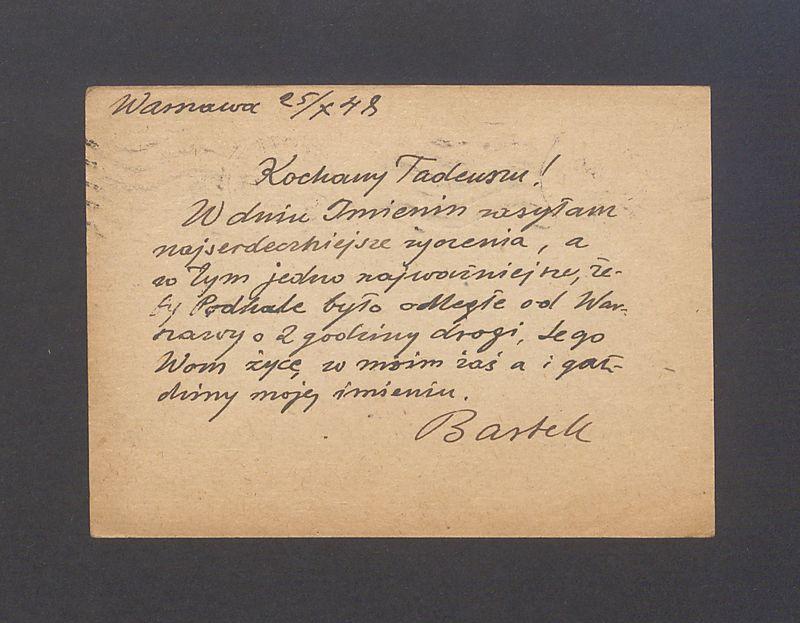 Warszawa 25/X 48
Kochany Tadeuszu!
W dniu Imienin zasyłam
najserdeczniejsze życzenia, a
w tym jedno najważniejsze, że-
by Podhale było odległe od War-
szawy o 2 godziny drogi, tego
Wam życzę, w moim zaś a i
dziny mojej imieniu.
Bartek